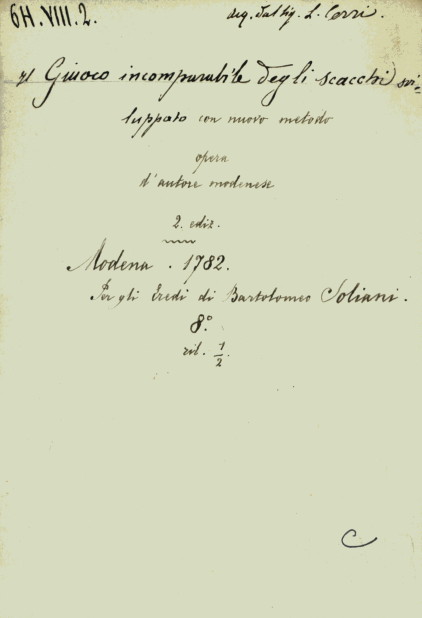 6H.VIII.2.
acq. dal Sig. L. Cerri.
Il Giuoco incomparabile degli scacchi svi-
luppato con nuovo metodo
opera
d'autore modenese
2. ediz.
Modena. 1782.
Per gli Eredi di Bartolomeo Soliani.
8.°
ril. 1/2.
C